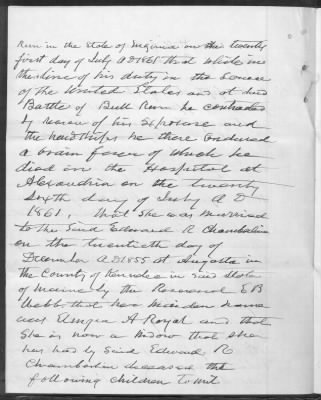 Run in the State of Virginia on the twenty
first day of July AD 1861 that while in
the line of his duty in the Service
of the United States and at said
Battle of Bull Run he contracted
by reason of his Exposure and
the hardships he there Endured
a brain fever of which he
died in the Hospital at
Alexandria on the twenty
sixth day of July A D
1861, that she was married
to the Said Edward R Chamberlin
on the twentieth day of
December AD 1855 at Augusta in
the County of Kennebec in said State
of Maine by the Reverend E B
Webb that her maiden name
was Elmyra A Royal and that
She is now a widow that she
has had by Said Edward R
Chamberlin deceased the
following children to wit